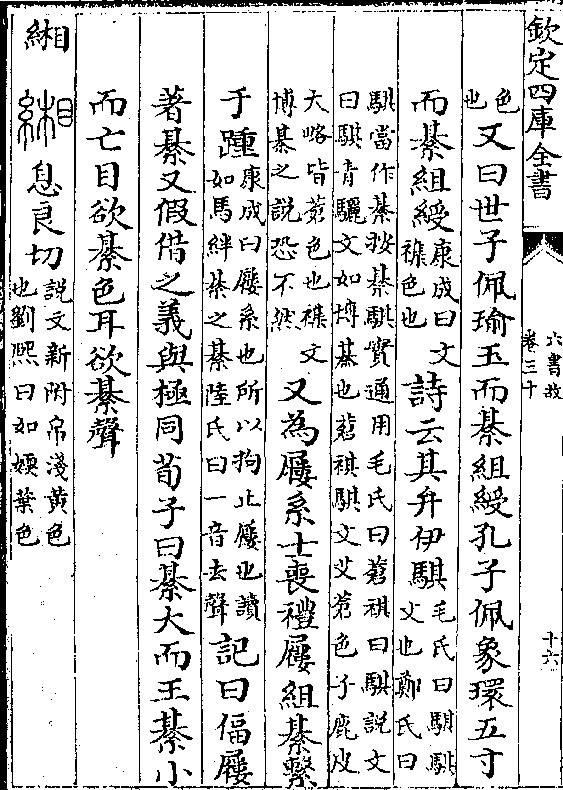 欽定四庫全書 六書故 卷三十 十六
色也又曰世子佩瑜玉而綦組綬孔子佩象環五寸
而綦組綬康成曰文襍色也詩云其弁伊騏毛氏曰騏騏文也鄭氏曰
騏當作綦按綦騏實通用毛氏曰蒼祺曰騏說文
曰騏青驪文如博棊也蒼祺騏文艾蒼色子鹿皮
大略皆蒼色也襍文博棊之說恐不然又為屨系士喪禮屨組綦繫
于踵康成曰屨系也所以拘止屨也讀如馬絆綦之綦陸氏曰一音去聲記曰偪屨
著綦又假借之義與極同荀子曰綦大而王綦小
而亡目欲綦色耳欲綦聲
緗 緗 息良切說文新附帛淺黃色也劉熙曰如媆葉色